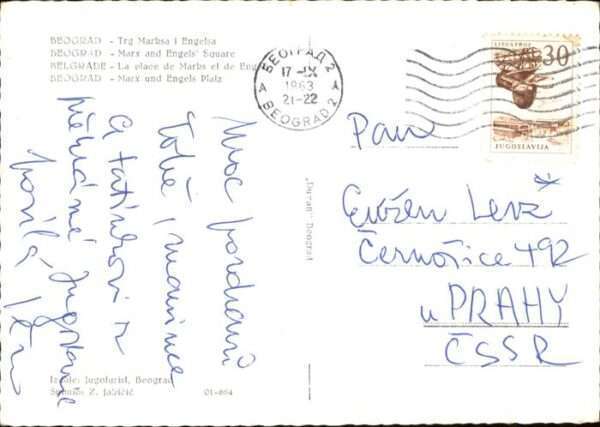 BEOGRAD - Trg Marksa i Engelsa
BEOGRAD - Marx and Engels' Square
BELGRADE - La place de Marks et de Eng
BEOGRAD - Marx und Engels Platz
БЕОГРАД 2
17 -IX
1963
21-22
BEOGRAD 2
JUGOSLAVIJA
30
Moc pozdravů
Tobě, mamince
a tatínkovi z
překrásné Jugoslávie
posílá
Pan
Evžen
Černošice 492
u PRAHY
ČSSR
"Putnik" Beograd
Izdaje: Jugoturist, Beograd
Snimio Z. Jeričić
01-664